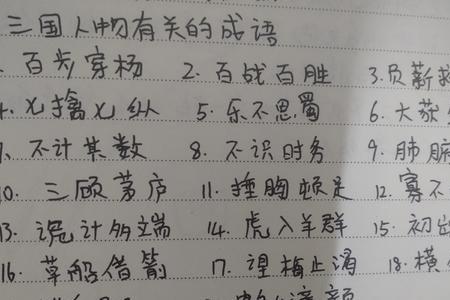 三国人物有关的成语
百步穿杨 2. 百战百胜 3. 负薪救
4. 七擒七纵 5. 乐不思蜀 6. 大获
7. 不计其数 8. 不识时务 9. 肺腑
10. 三顾茅庐 11. 捶胸顿足 12. 寡不
13. 诡计多端 14. 虎入羊群 15. 初出
16. 草船借箭 17. 望梅止渴 18. 横